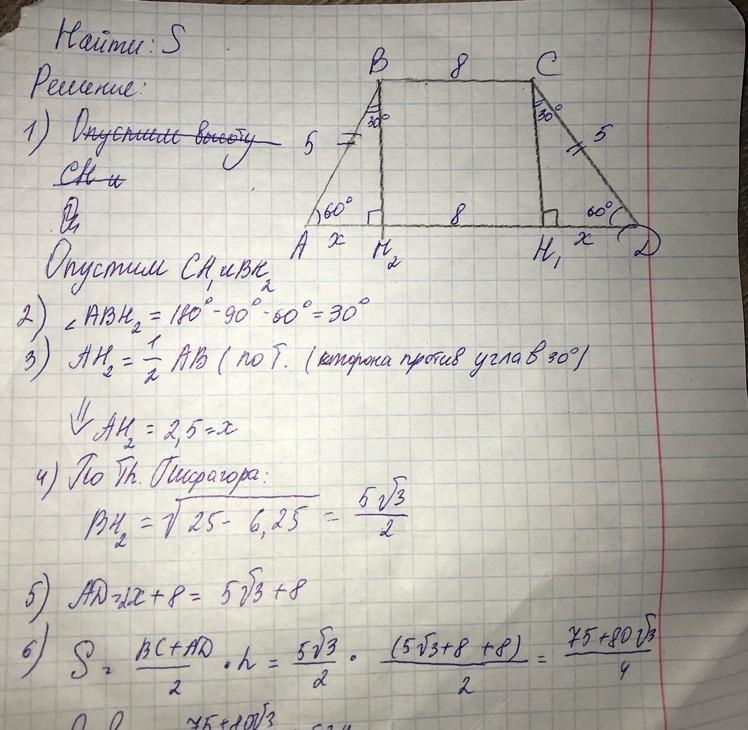 Найти: S
Решение:
1) Опустим высоту
CH и
Опустим CH₁ и BH₂
B 8 C
30° 30°
5 5
60° 8 60°
A x H₂ H₁ x D
2) ∠ABH₂ = 180° - 90° - 60° = 30°
3) AH₂ = 1/2 AB ( по Т. (сторона против угла в 30°)
⇓ AH₂ = 2,5 = x
4) По Th. Пифагора:
BH₂ = √(25 - 6,25) = 5√3/2
5) AD = 2x + 8 = 5√3 + 8
6) S = (BC + AD)/2 · h = 5√3/2 · (5√3 + 8 + 8)/2 = (75 + 80√3)/4
75+80√3